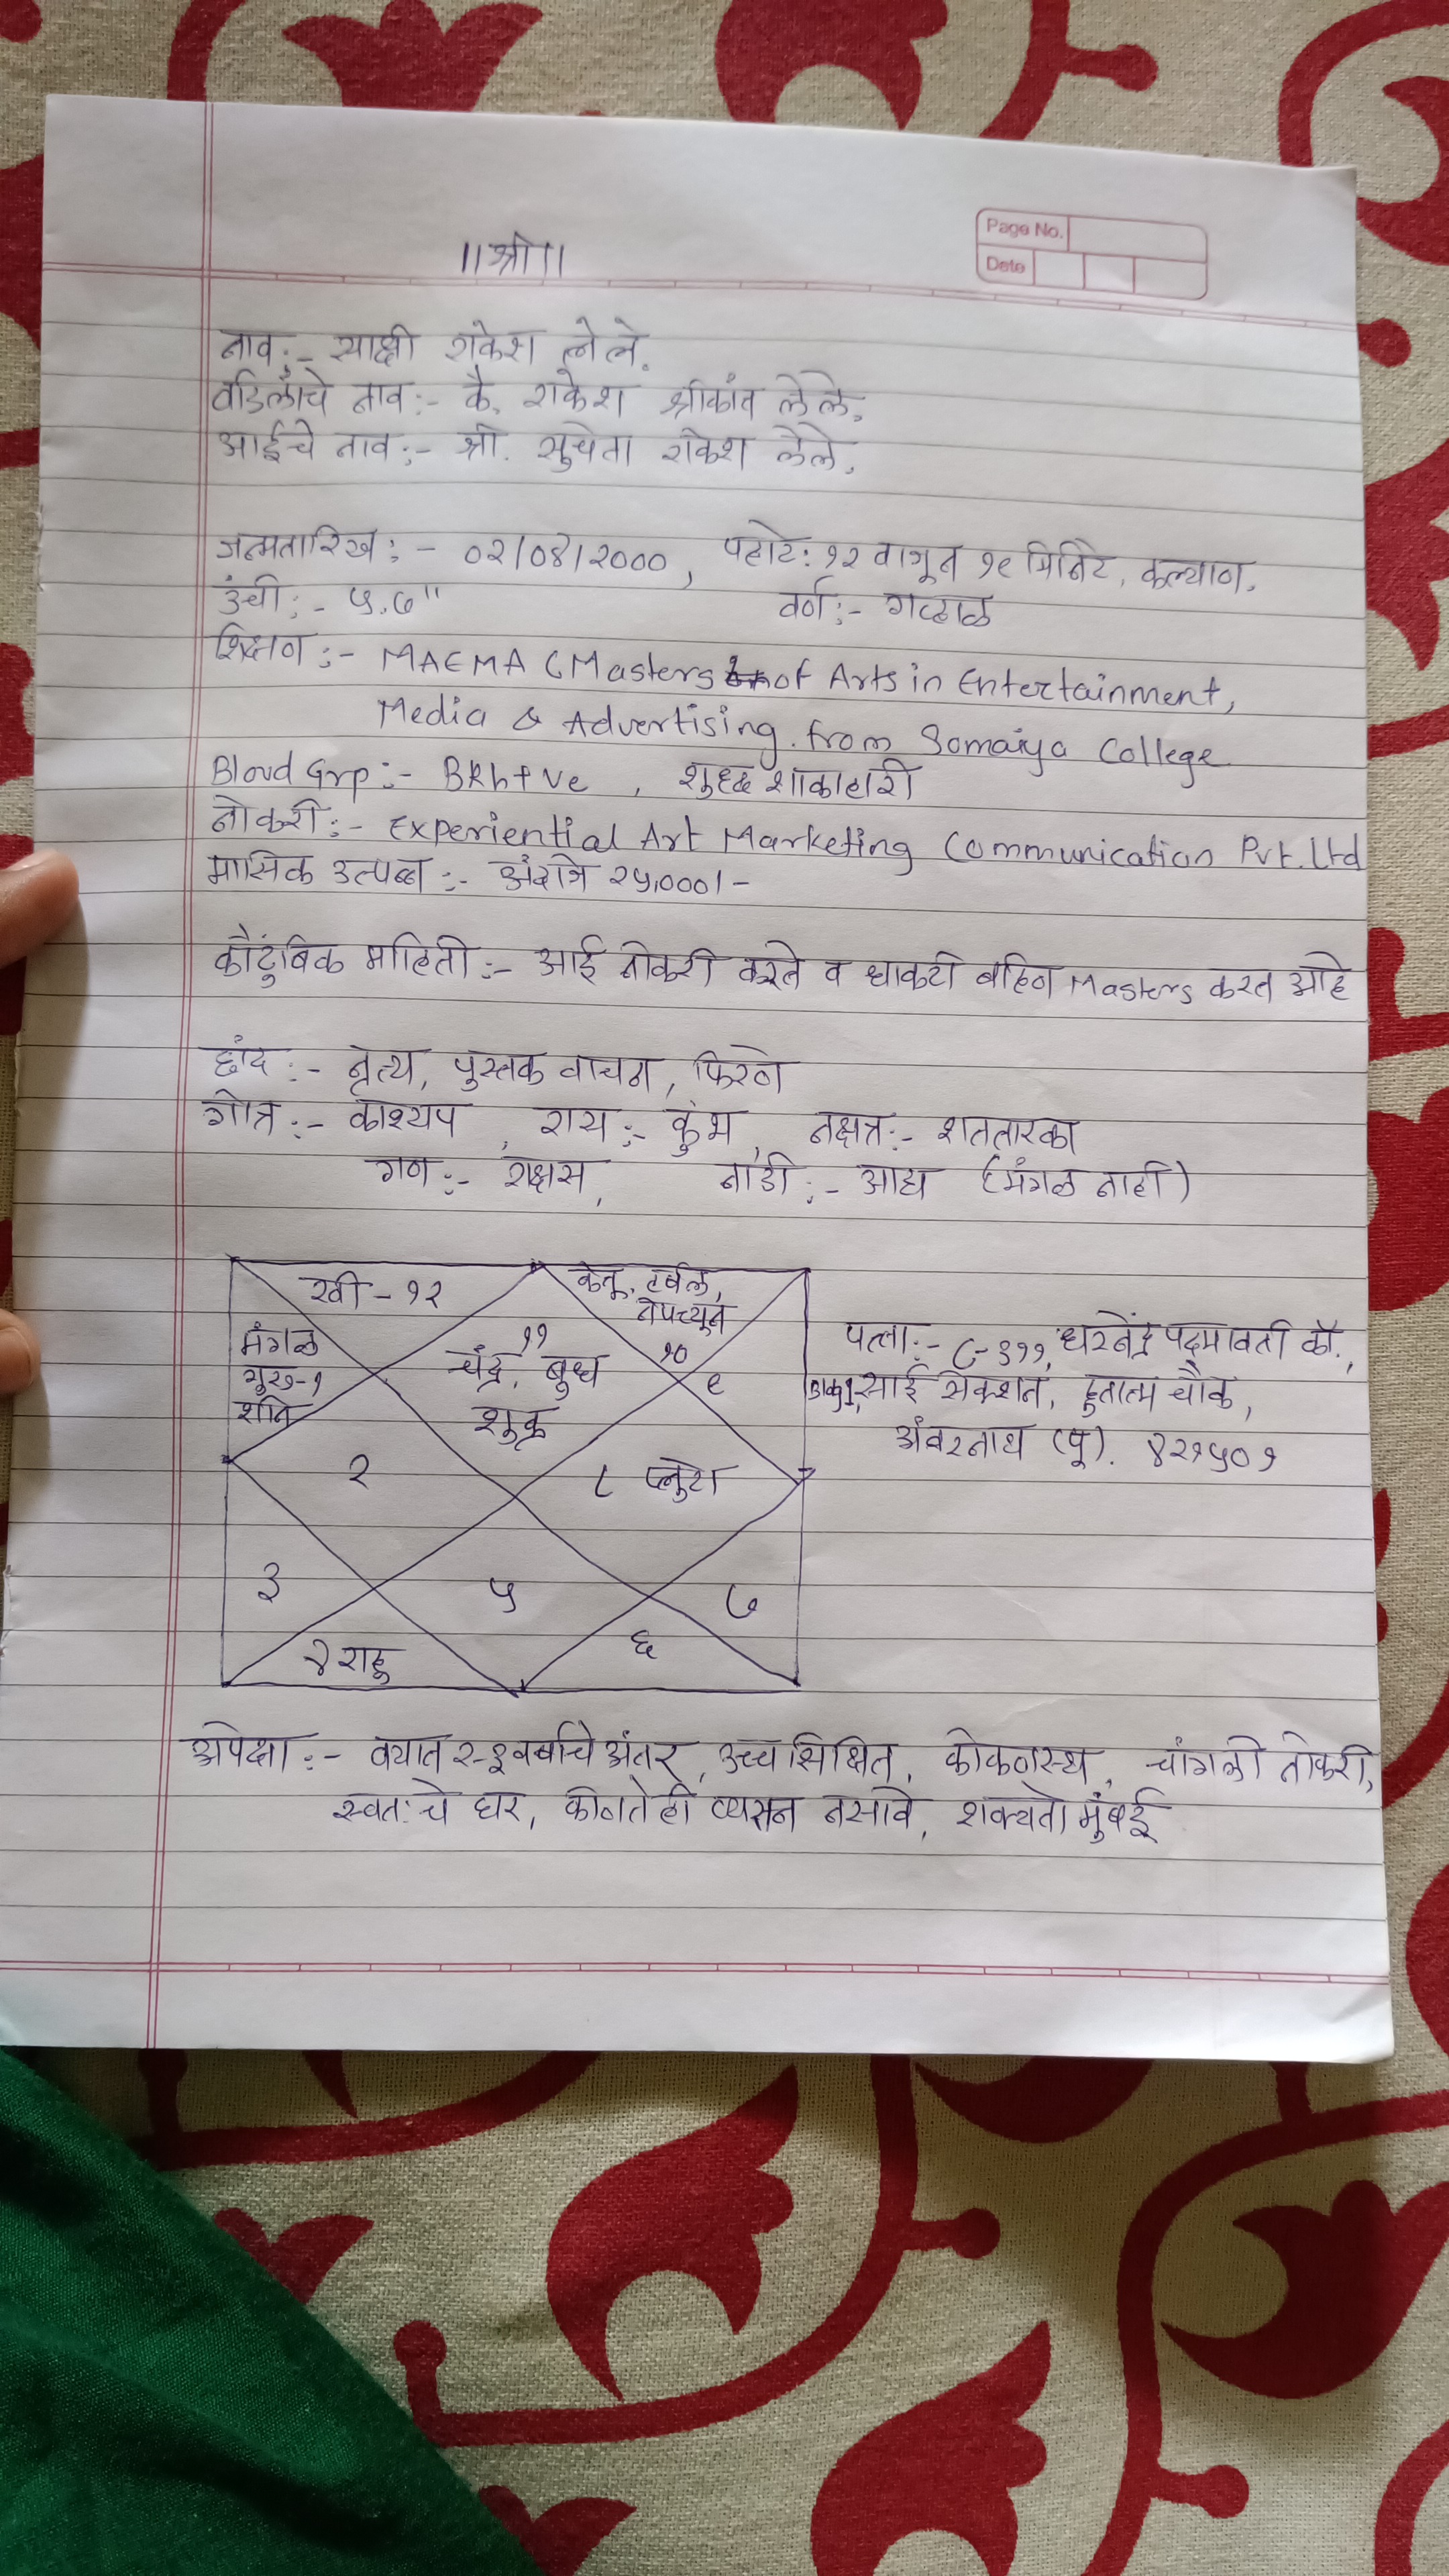 ॥श्री॥
Page No.
Date
नाव:- साक्षी राकेश लेले.
वडिलांचे नाव:- कै. राकेश श्रीकांत लेले.
आईचे नाव:- श्री. सुचेता राकेश लेले.
जन्मतारिख:- 02/04/2000, पहाटे: १२ वाजून १८ मिनिटे, कल्याण.
उंची:- ५.७" वर्ण:- गव्हाळ
शिक्षण:- MAEMA (Masters of Arts in Entertainment,
Media & Advertising. from Somaiya College
Blood Grp:- BRh+ve, शुद्ध शाकाहारी
नोकरी:- Experiential Art Marketing Communication Pvt. Ltd
मासिक उत्पन्न:- अंदाजे २५,000/-
कौटुंबिक माहिती:- आई नोकरी करते व धाकटी बहिण Masters करत आहे
छंद:- नृत्य, पुस्तक वाचन, फिरणे
गोत्र:- काश्यप, रास:- कुंभ, नक्षत्र:- शततारका
गण:- राक्षस, नाडी:- आद्य (मंगळ नाही)
रवी - १२
केतू, हर्षल,
नेपच्यून
मंगळ
गुरु-१
शनि
११
चंद्र, बुध
शुक्र
१०
९
२
८ प्लुटो
३
५
७
४ राहु
६
पत्ता:- C-३११, धरनेंद्र पद्मावती कॉ.,
साई सेक्शन, हुतात्म चौक,
अंबरनाथ (पू). ४२१५०१
अपेक्षा:- वयात २-३ वर्षाचे अंतर, उच्चशिक्षित, कोकणस्थ, चांगली नोकरी,
स्वतःचे घर, कोणतेही व्यसन नसावे, शक्यतो मुंबई